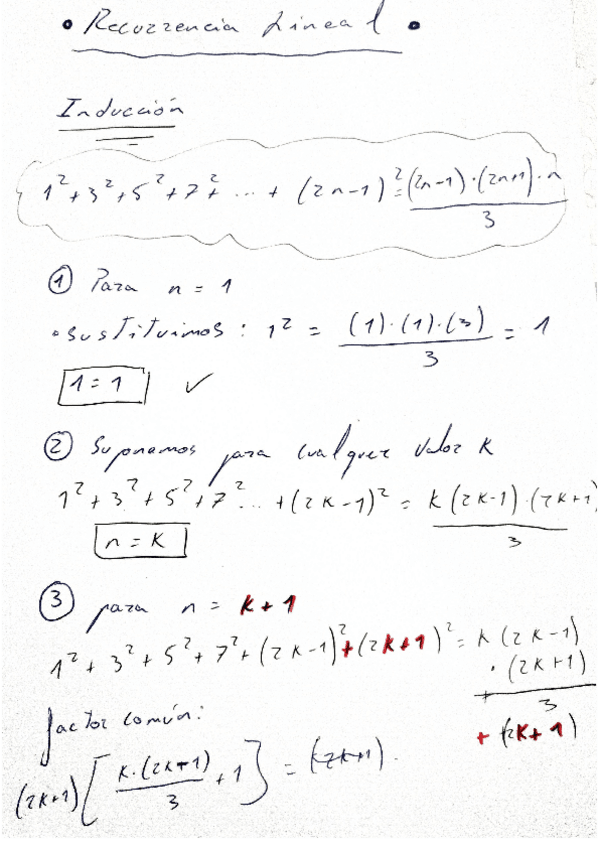 • Recurrencia Lineal •
Inducción
1² + 3² + 5² + 7² + ... + (2n-1)² = (2n-1)·(2n+1)·n / 3
① Para n = 1
• sustituimos : 1² = (1)·(1)·(3) / 3 = 1
1 = 1 ✓
② Suponemos para cualquier valor K
1² + 3² + 5² + 7² ... + (2K-1)² = K(2K-1)·(2K+1) / 3
n = K
③ para n = K+1
1² + 3² + 5² + 7² + (2K-1)² + (2K+1)² = K(2K-1)·(2K+1) / 3 + (2K+1)
factor común:
(2K+1) [ K·(2K+1) / 3 + 1 ] = (2K+1).